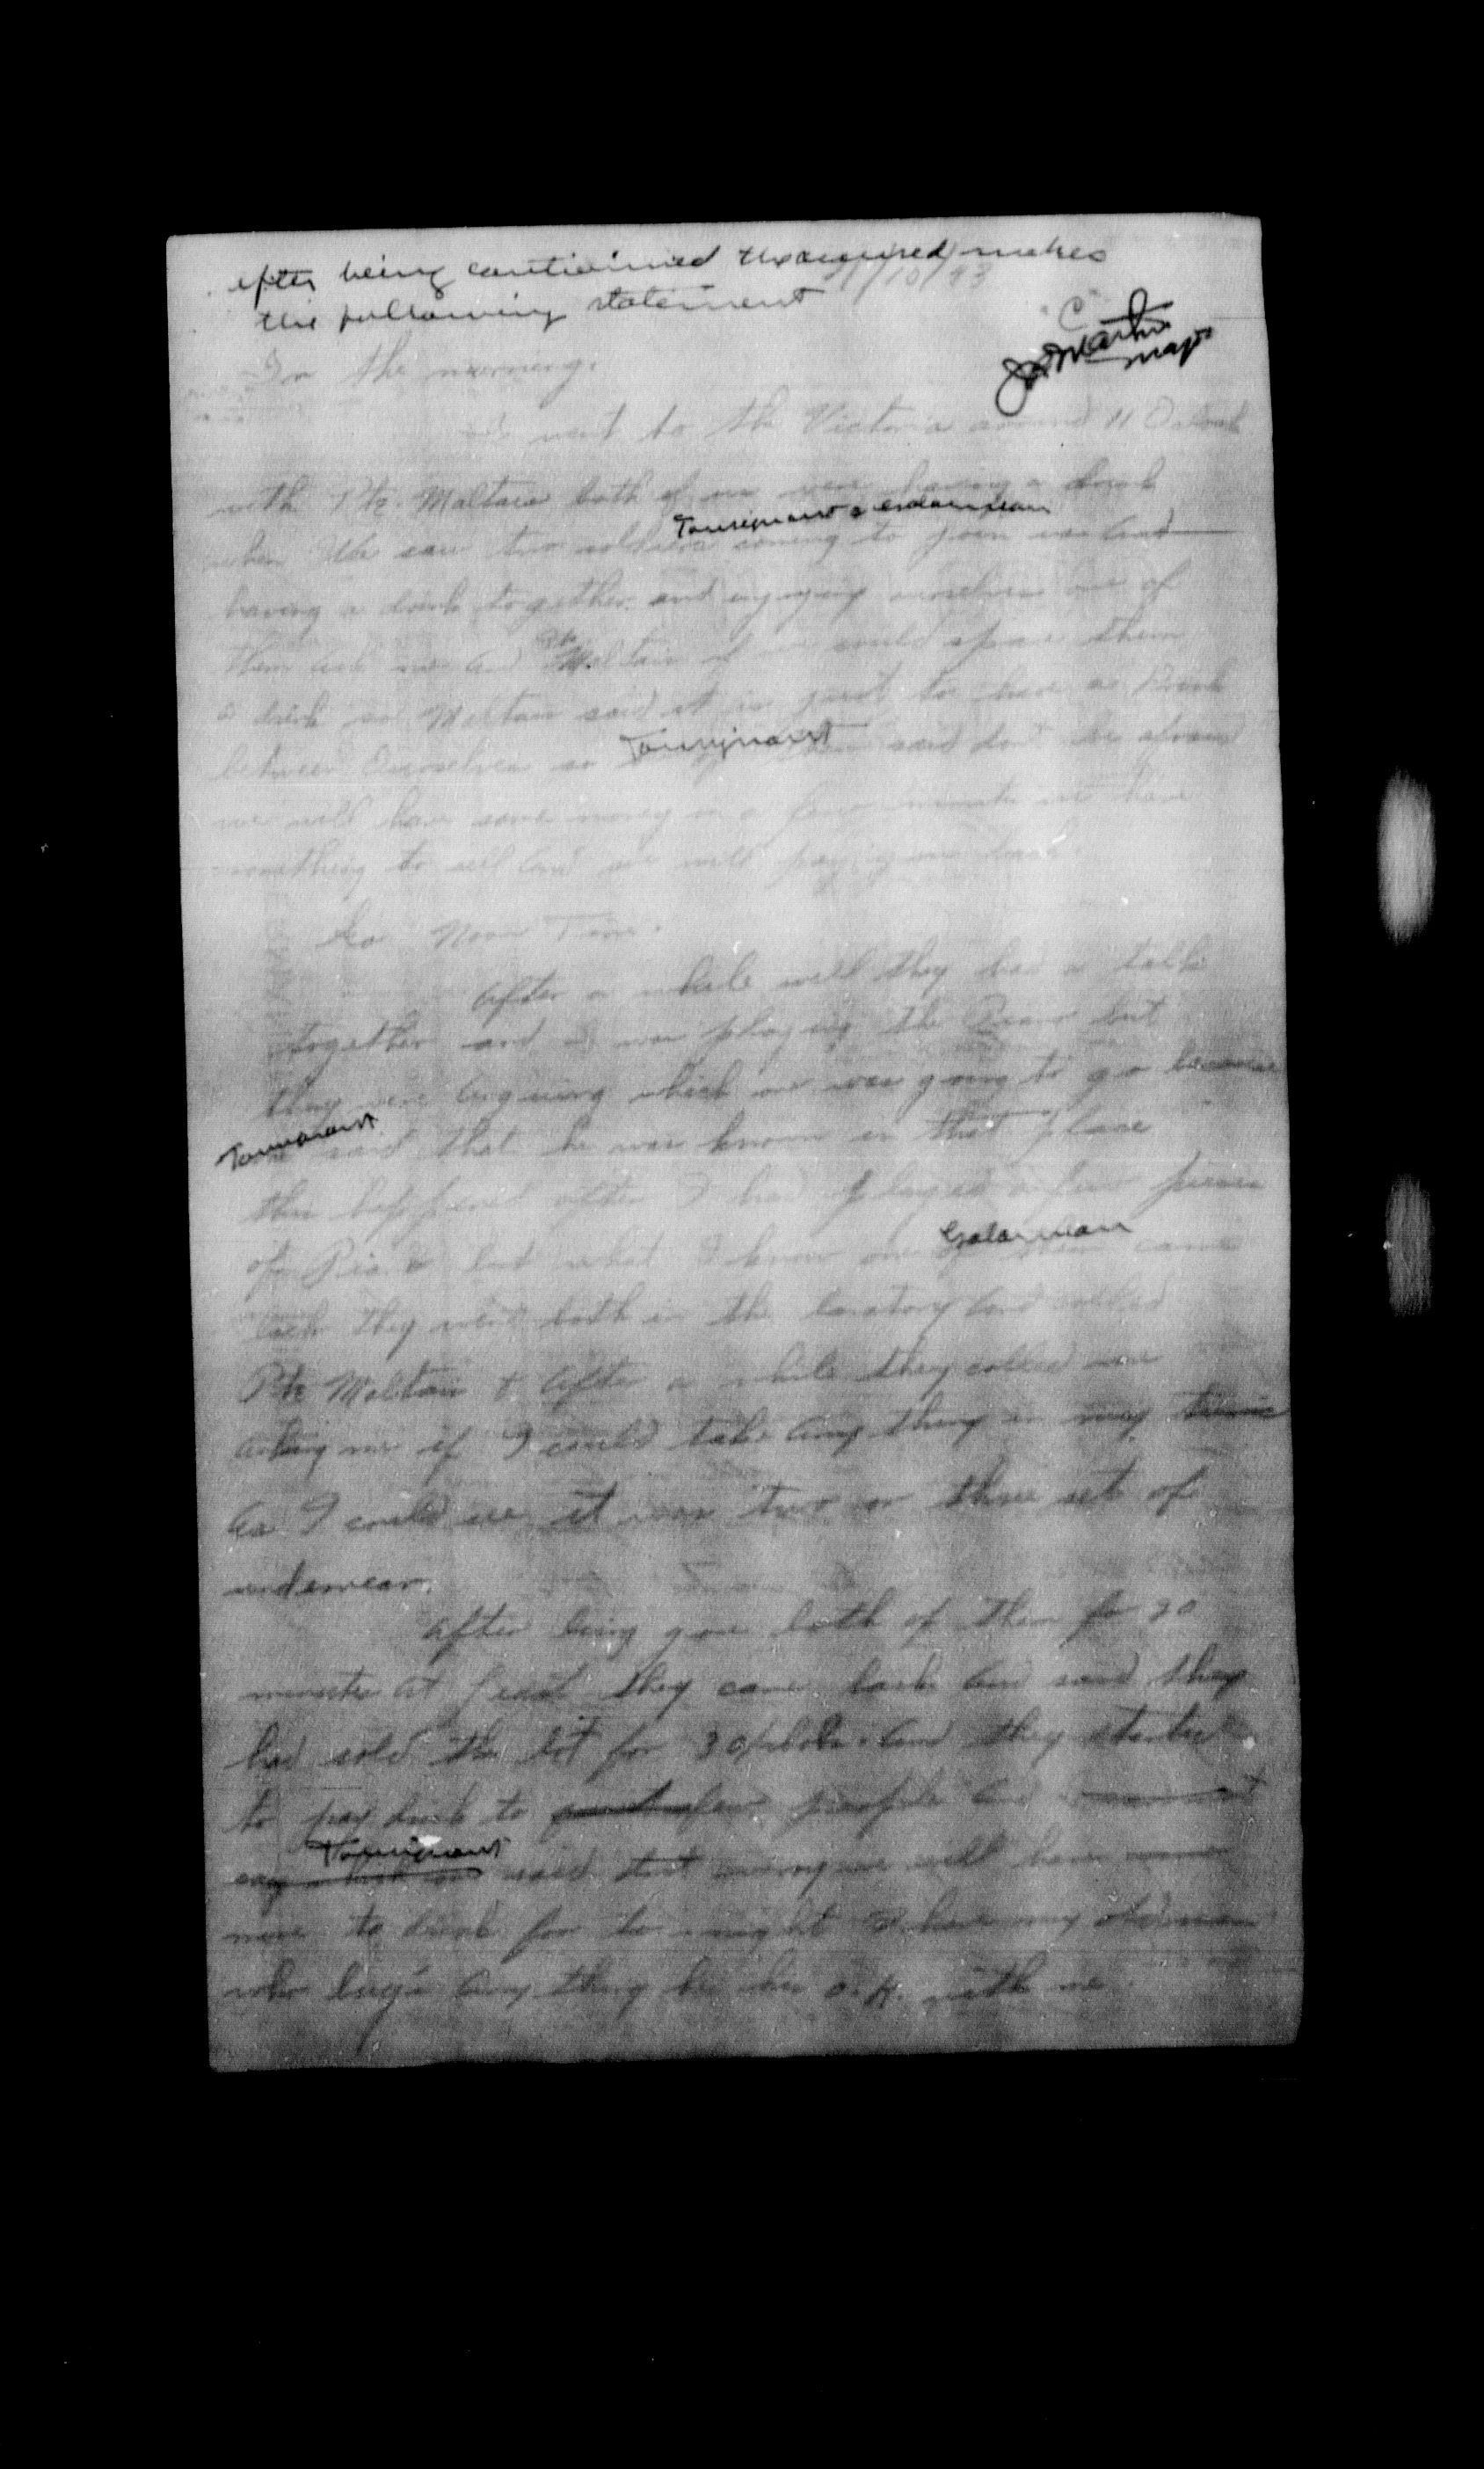 after being cautioned the accused makes
the following statement /10/43
"C"
Martin
Major
In the morning.
I went to the Victoria around 11 O clock
with Pte. Maltais both of us were having a drink
Tousignant &
when We saw two soldiers coming to join us And
having a drink together and enjoying ourselves one of
them ask me And Pte Maltais if we could spare them
a drink so Maltais said it is just to have a Drink
Tousignant
between Ourselves so said don't be afraid
we will have some money in a few minute we have
something to sell And we will pay you back.
Noon Time.
After a while well they had a talk
together and I was playing the Piano but
they were Arguing which one was going to go because
Tousignant
said that he was known in that place
this happened after I had played a few pieces
Galarneau
of Piano but what I know one of them came
back they went both in the lavatory And called
Pte Maltais & After a while they called me
Asking me if I could take Any thing in my tunic
As I could see it was two or three set of
underwear.
After being gone both of them for 20
minutes At least they came back And said they
had sold the lot for 30/ And they started
to pay drink to few people And
Tousignant
said don't worry we will have some
more to drink for to-night I have my
who buys Any thing he his O.K. with me.